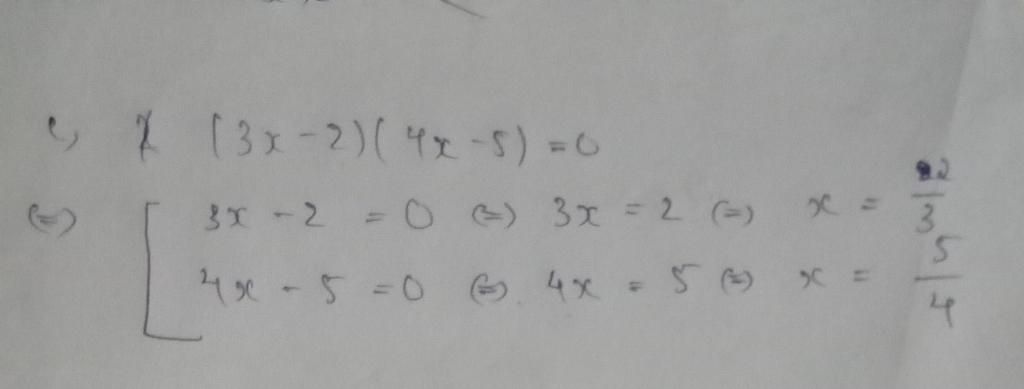 c, (3x - 2)(4x - 5) = 0
(=) [ 3x - 2 = 0 (=) 3x = 2 (=) x = 2/3
4x - 5 = 0 (=) 4x = 5 (=) x = 5/4